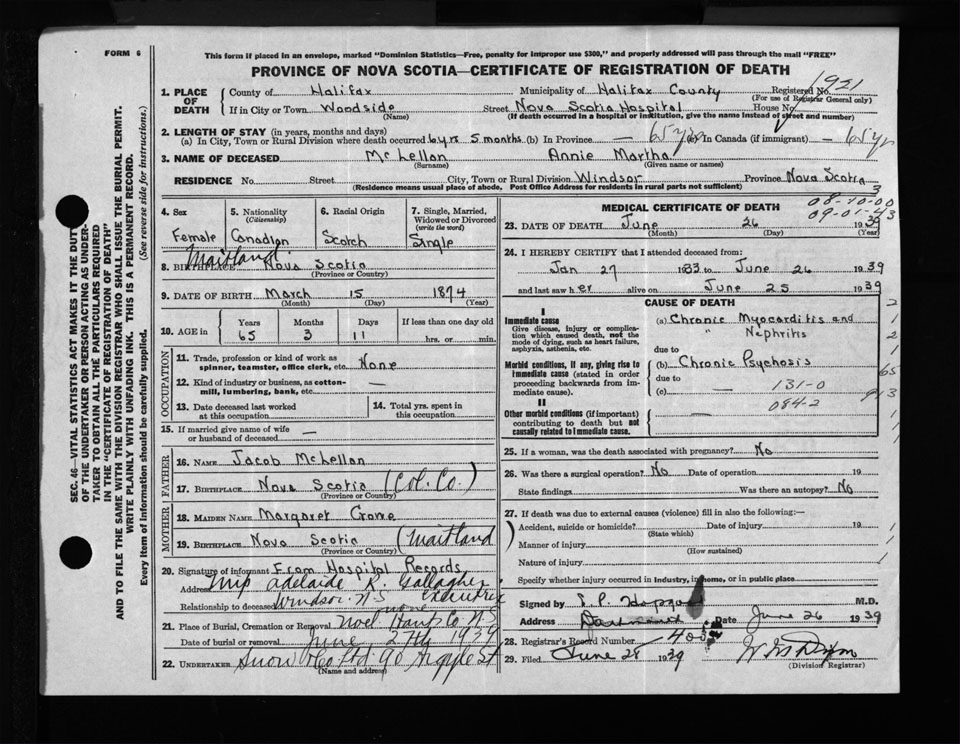 FORM 6
This form if placed in an envelope, marked "Dominion Statistics—Free, penalty for improper use $300," and properly addressed will pass through the mail "FREE"
PROVINCE OF NOVA SCOTIA—CERTIFICATE OF REGISTRATION OF DEATH
SEC. 46—VITAL STATISTICS ACT MAKES IT THE DUTY
OF THE UNDERTAKER OR PERSON ACTING AS UNDER-
TAKER TO OBTAIN ALL THE PARTICULARS REQUIRED
IN THE "CERTIFICATE OF REGISTRATION OF DEATH"
AND TO FILE THE SAME WITH THE DIVISION REGISTRAR WHO SHALL ISSUE THE BURIAL PERMIT.
WRITE PLAINLY WITH UNFADING INK. THIS IS A PERMANENT RECORD.
Every item of information should be carefully supplied. (See reverse side for instructions.)
1921
1. PLACE OF DEATH County of Halifax Municipality of Halifax County Registered No.
(For use of Registrar General only)
If in City or Town Woodside Street Nova Scotia Hospital House No.
(Name) (If death occurred in a hospital or institution, give the name instead of street and number)
2. LENGTH OF STAY (in years, months and days)
(a) In City, Town or Rural Division where death occurred 6 yrs 5 months (b) In Province — 65 yrs (c) In Canada (if immigrant) — 65 yr
3. NAME OF DECEASED McLellan Annie Martha
(Surname) (Given name or names)
RESIDENCE No. Street City, Town or Rural Division Windsor Province Nova Scotia
(Residence means usual place of abode. Post Office Address for residents in rural parts not sufficient)
3
4. Sex 5. Nationality (Citizenship) 6. Racial Origin 7. Single, Married, Widowed or Divorced (write the word)
Female Canadian Scotch Single
Maitland
8. BIRTHPLACE Nova Scotia
(Province or Country)
9. DATE OF BIRTH March 15 1874
(Month) (Day) (Year)
10. AGE in Years Months Days If less than one day old
65 3 11 hrs. or min.
OCCUPATION
11. Trade, profession or kind of work as spinner, teamster, office clerk, etc. None
12. Kind of industry or business, as cotton-mill, lumbering, bank, etc. —
13. Date deceased last worked at this occupation
14. Total yrs. spent in this occupation
15. If married give name of wife or husband of deceased —
FATHER
16. NAME Jacob McLellan
17. BIRTHPLACE Nova Scotia (Col. Co.)
(Province or Country)
MOTHER
18. MAIDEN NAME Margaret Crowe
19. BIRTHPLACE Nova Scotia (Maitland)
(Province or Country)
20. Signature of informant From Hospital Records
Address Adelaide R. Gallagher
Relationship to deceased Windsor N.S. Executrix
21. Place of Burial, Cremation or Removal Noel Hants Co. N.S.
Date of burial or removal June 27th 1939
22. UNDERTAKER Snow & Co Ltd 90 Argyle St
(Name and address)
MEDICAL CERTIFICATE OF DEATH
08-10-00
09-01-43
23. DATE OF DEATH June 26 1939
(Month) (Day) (Year)
24. I HEREBY CERTIFY that I attended deceased from:
Jan 27 1933 to June 26 1939
and last saw her alive on June 25 1939
CAUSE OF DEATH
I
Immediate cause
Give disease, injury or complication which caused death, not the mode of dying, such as heart failure, asphyxia, asthenia, etc.
(a) Chronic Myocarditis and
" Nephritis
due to
Morbid conditions, if any, giving rise to immediate cause (stated in order proceeding backwards from immediate cause).
(b) Chronic Psychosis
due to
(c) — 131-0
084-2
II
Other morbid conditions (if important) contributing to death but not causally related to immediate cause.
—
25. If a woman, was the death associated with pregnancy? No
26. Was there a surgical operation? No Date of operation 19
State findings Was there an autopsy? No
27. If death was due to external causes (violence) fill in also the following:—
Accident, suicide or homicide? Date of injury 19
(State which)
Manner of injury
(How sustained)
Nature of injury
Specify whether injury occurred in industry, in home, or in public place
Signed by M.D.
Address Dartmouth Date June 26 1939
28. Registrar's Record Number
29. Filed June 28 1939
(Division Registrar)